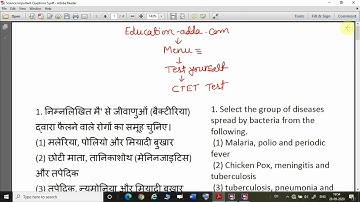 Science Important Questions 5.pdf - Adobe Reader
Education-adda.com
↓
Menu ≡
↓
Test yourself
↓
CTET Test
1. निम्नलिखित मैं से जीवाणुओं (बैक्टीरिया)
द्वारा फैलने वाले रोगों का समूह चुनिए।
(1) मलेरिया, पोलियो और मियादी बुखार
(2) छोटी माता, तानिकाशोथ (मेनिनजाइटिस)
और तपेदिक
(3) तपेदिक, न्यूमोनिया और मियादी बुखार
1. Select the group of diseases
spread by bacteria from the
following.
(1) Malaria, polio and periodic
fever
(2) Chicken Pox, meningitis and
tuberculosis
(3) tuberculosis, pneumonia and